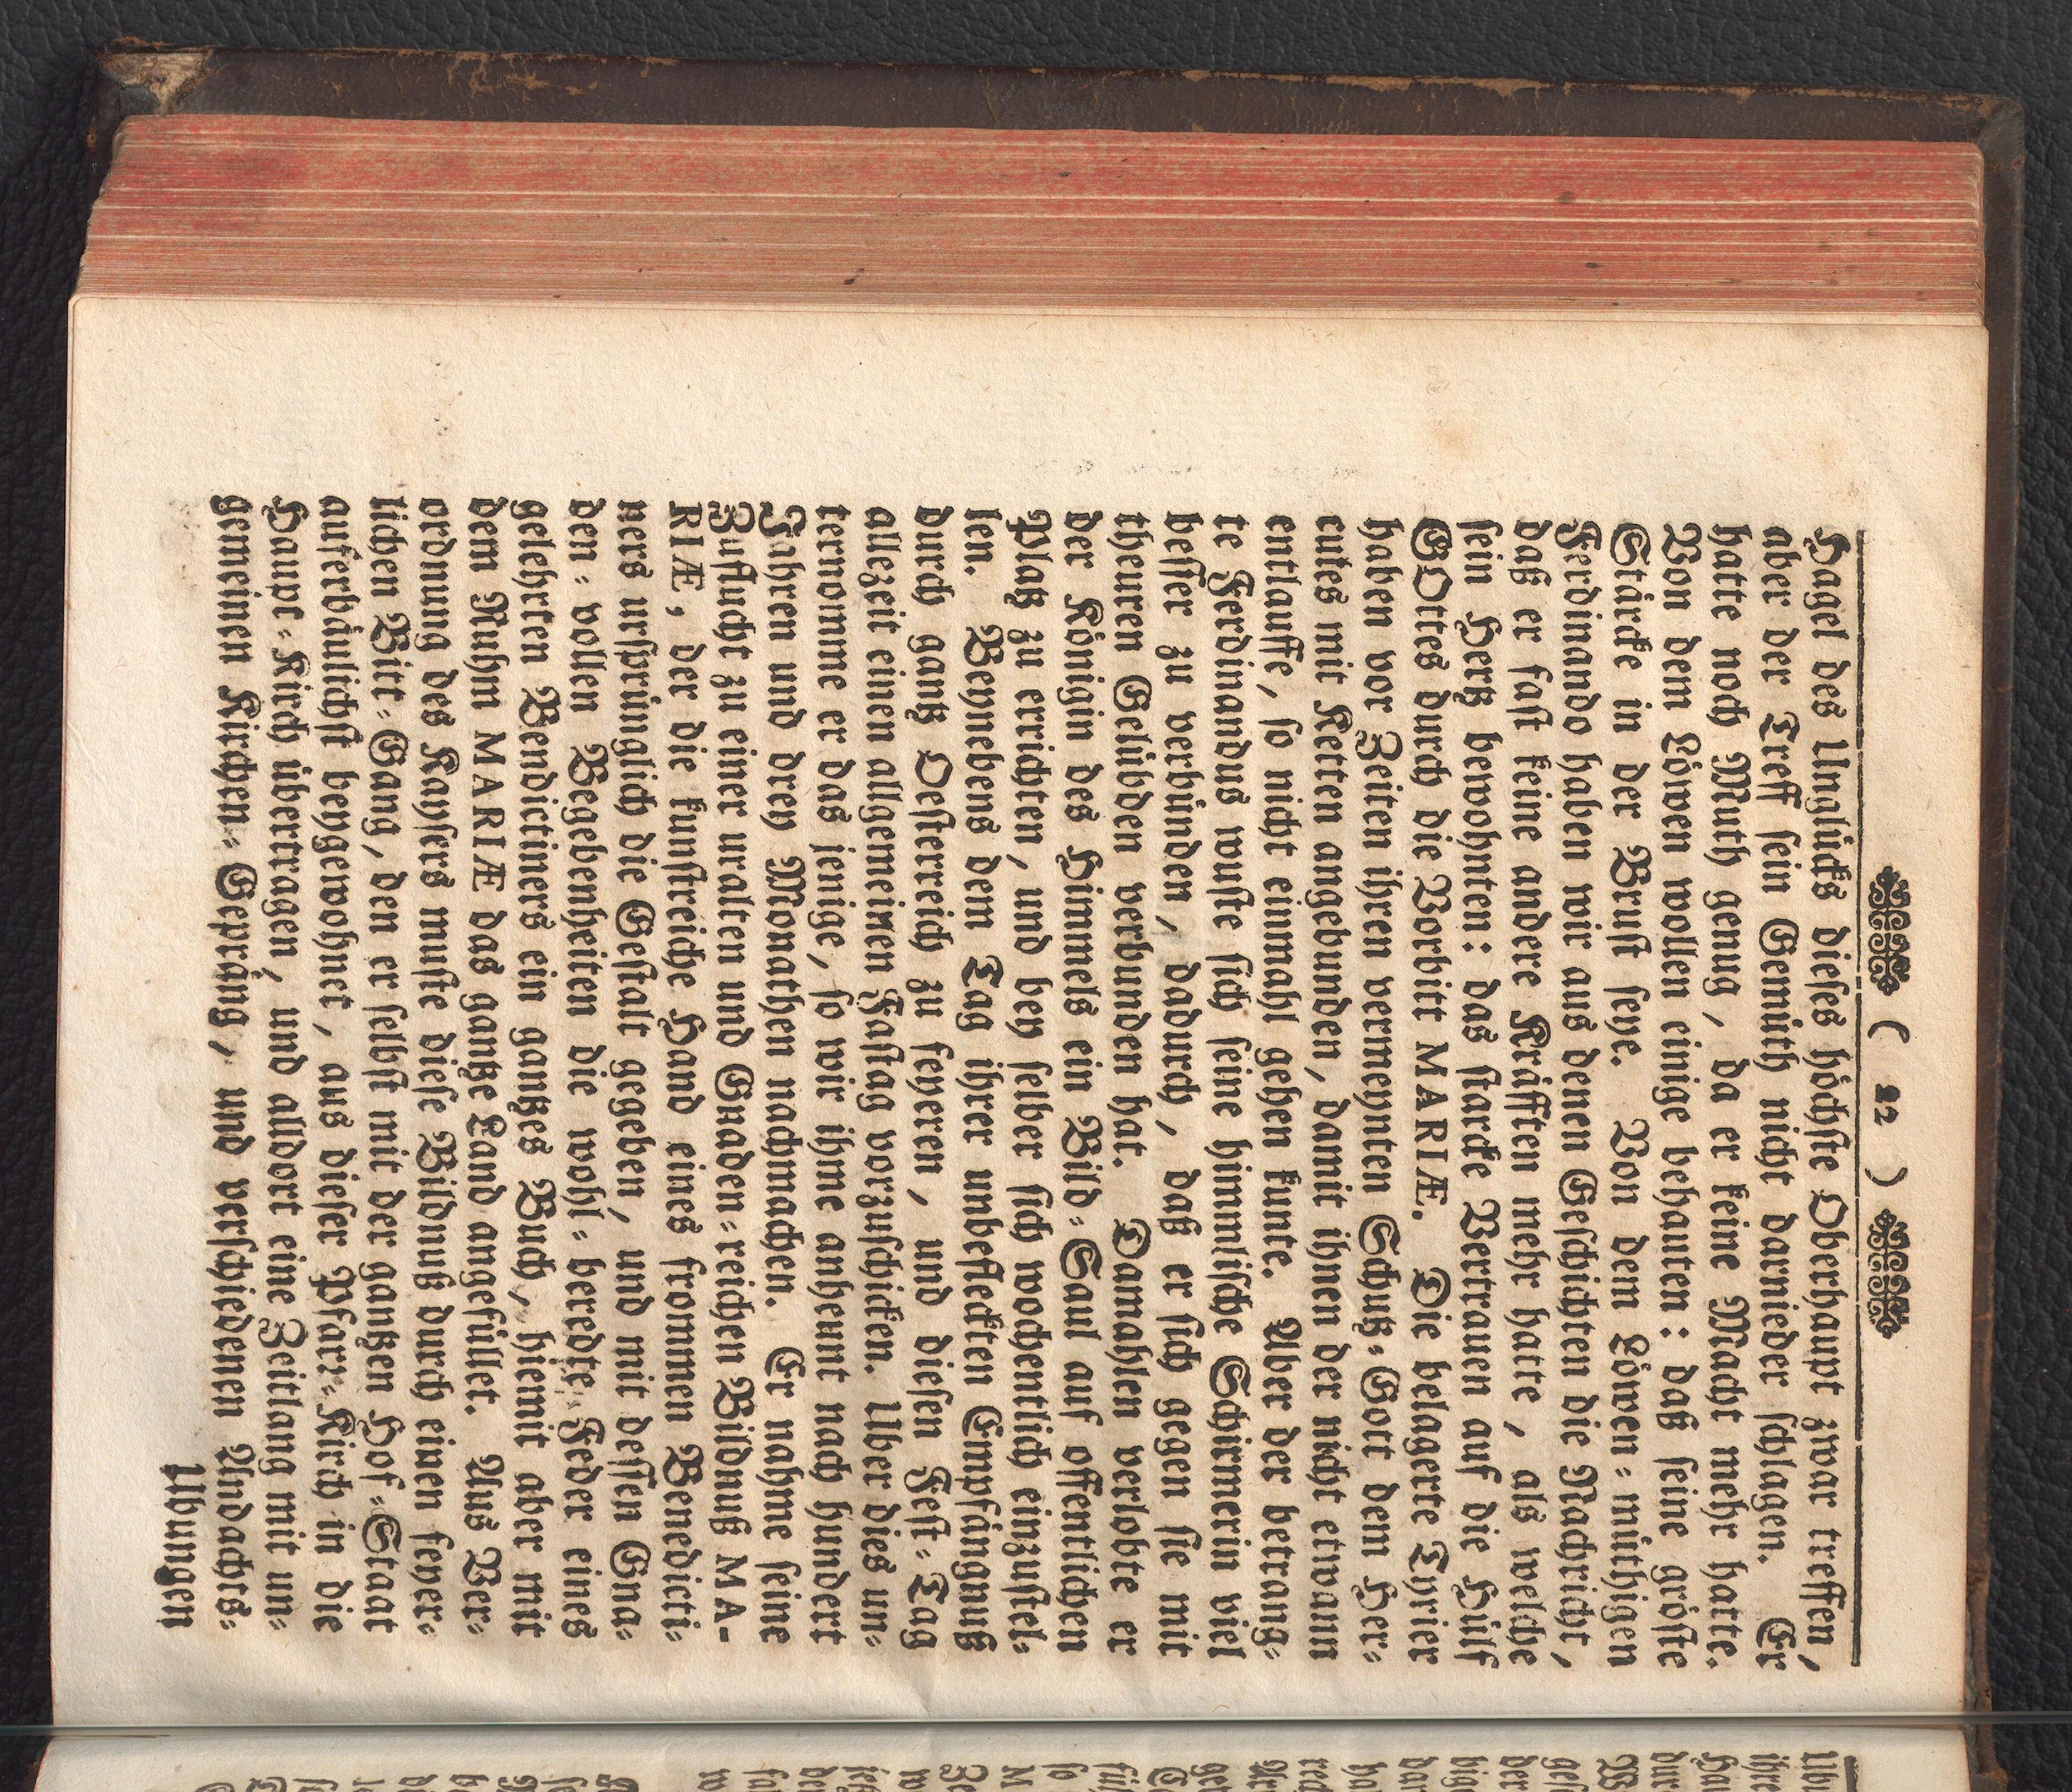 ( 22 )
Hagel des Unglücks dieses höchste Oberhaupt zwar treffen,
aber der Treff sein Gemüth nicht darnieder schlagen. Er
hatte noch Muth genug, da er keine Macht mehr hatte.
Von dem Löwen wollen einige behauten: daß seine gröste
Stärcke in der Brust seye. Von dem Löwen-müthigen
Ferdinando haben wir aus denen Geschichten die Nachricht,
daß er fast keine andere Kräfften mehr hatte, als welche
sein Hertz bewohnten: das starcke Vertrauen auf die Hülf
GOttes durch die Vorbitt MARIÆ. Die belagerte Tyrier
haben vor Zeiten ihren vermeynten Schutz-Gott den Her-
cules mit Ketten angebunden, damit ihnen der nicht etwann
entlauffe, so nicht einmahl gehen kunte. Aber der betrang-
te Ferdinandus wuste sich seine himmlische Schirmerin viel
besser zu verbünden, dadurch, daß er sich gegen sie mit
theuren Gelübden verbunden hat. Damahlen verlobte er
der Königin des Himmels ein Bild-Saul auf offentlichen
Platz zu errichten, und bey selber sich wochentlich einzustel-
len. Beynebens dem Tag ihrer unbefleckten Empfängnuß
durch gantz Oesterreich zu feyeren, und diesen Fest-Tag
allezeit einen allgemeinen Fastag vorzuschicken. Uber dies un-
ternomme er das jenige, so wir ihme anheunt nach hundert
Jahren und drey Monathen nachmachen. Er nahme seine
Zuflucht zu einer uralten und Gnaden-reichen Bildnuß MA-
RIÆ, der die kunstreiche Hand eines frommen Benedicti-
ners ursprünglich die Gestalt gegeben, und mit dessen Gna-
den-vollen Begebenheiten die wohl-beredte-Feder eines
gelehrten Bendictiners ein gantzes Buch, hiemit aber mit
dem Ruhm MARIÆ das gantze Land angefüllet. Aus Ver-
ordnung des Kaysers muste diese Bildnuß durch einen feyer-
lichen Bitt-Gang, den er selbst mit der gantzen Hof-Staat
auferbäulichst beygewohnet, aus dieser Pfarr-Kirch in die
Haupt-Kirch übertragen, und alldort eine Zeitlang mit un-
gemeinen Kirchen-Gepräng, und verschiedenen Andachts-
Ubungen